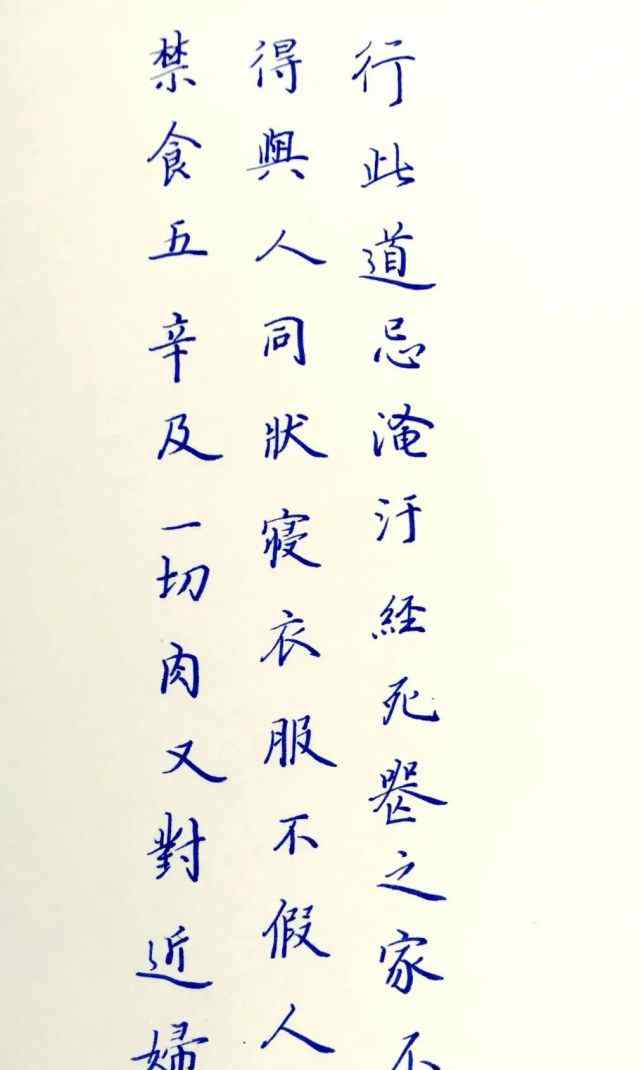 行此道忌淹汙經死喪之家不
得與人同狀寢衣服不假人
禁食五辛及一切肉又對近婦